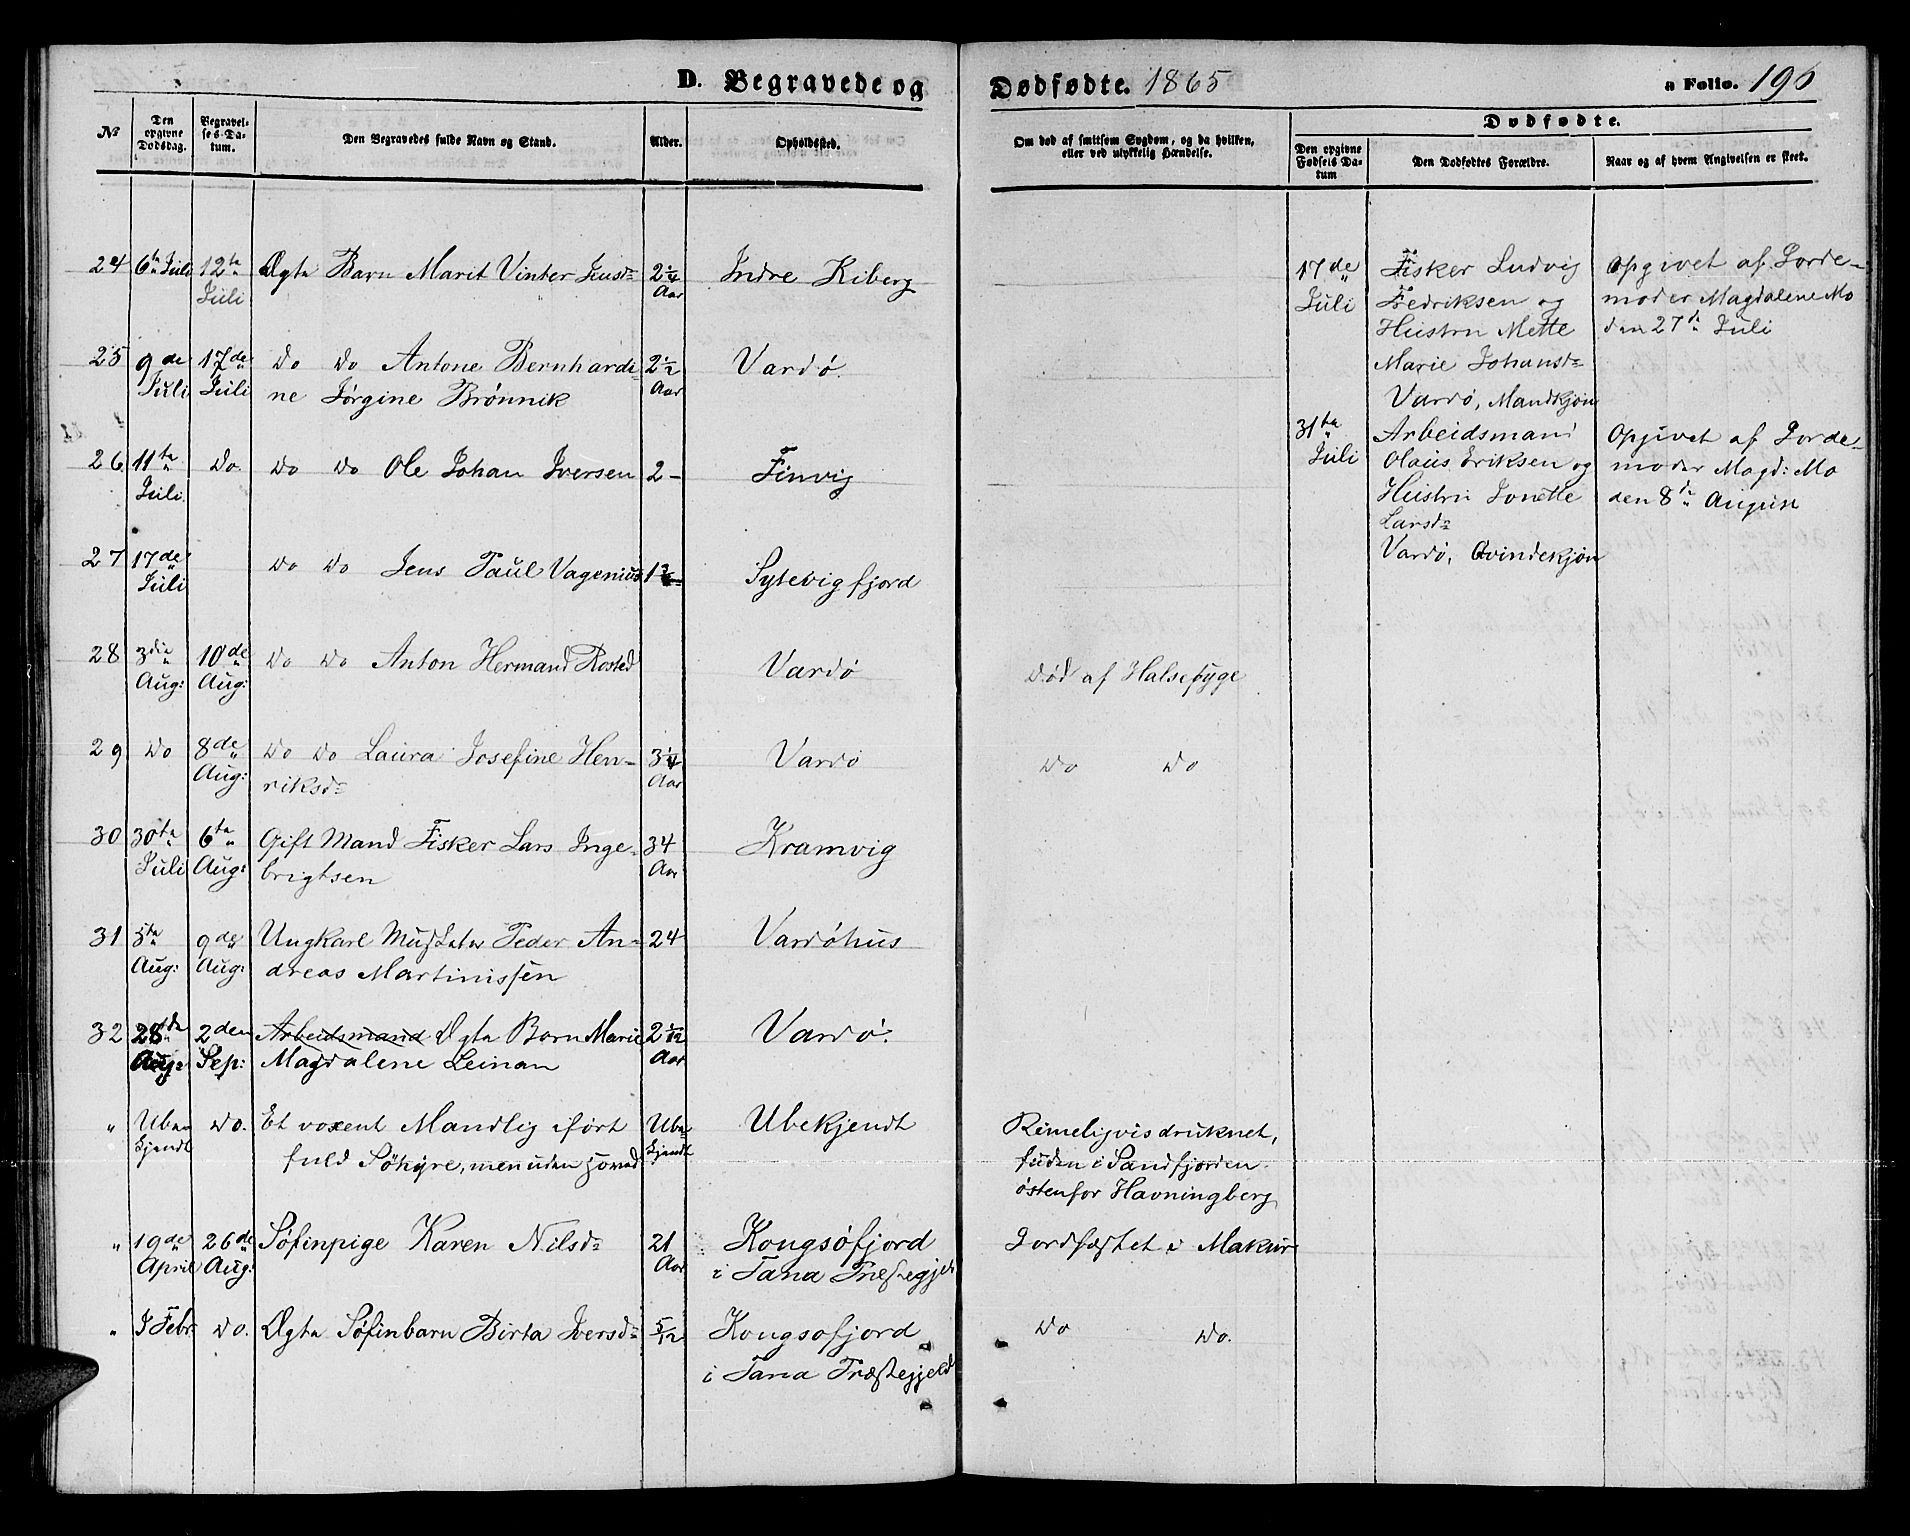 D. Begravede og Dødfødte. 1865 a Folio. 196
No
Den opgivne Dødsdag.
Begravelses-Datum.
Den Begravedes fulde Navn og Stand.
Alder.
Opholdssted.
Om død af smitsom Sygdom, og da hvilken, eller ved ulykkelig Hændelse.
Dødfødte.
Den opgivne Fødsels Datum
Den Dødfødtes Forældre.
Naar og af hvem Angivelsen er skeet.
24 6te Juli 12te Juli Ægte Barn Marit Vinter Jensd: 2 1/4 Aar Indre Kiberg
25 9de Juli 17de Juli Do Do Antone Bernhardi-
ne Jørgine Brønnik 2 1/2 Aar Vardø.
26 11te Juli Do. Do Do Ole Johan Iversen 2 – Finvig
27 17de Juli Do Do Jens Paul Vagenius Sytevigfjord
28 3die Aug: 10de Aug: Do Do Anton Hermand Rosted Vardø Død af Halsesyge
29 Do 8de Aug: Do Do Laura Josefine Hen-
riksd: 3 1/4 Aar Vardø Do Do
30 30te Juli 6te Aug: Gift Mand Fisker Lars Inge-
brigtsen 34 Aar Kramvig
31 5te Aug: 9de Aug: Ungkarl Musketer Peder An-
dreas Martinissen 24 Vardøhus
32 28de Aug: 2den Sep: Arbeidsmand Ægte Barn Marie
Magdalene Leinan 2 1/12 Aar Vardø.
" Ubekjendt Do. Et voxent Mandlig iført
fuld Søhyre, men uden hoved Ubekjendt Ubekjendt Rimeligvis druknet,
funden i Sandfjorden
østenfor Havningberg
" 19de April 26de Aug: Søfinpige Karen Nilsd: 21 Aar Kongsøfjord
i Tana Præstegjeld Jordfæstet i Makur
" Febr Do. Ægte Søfinbarn Birta Iversd: 5/12 Kongsøfjord
i Tana Præstegjeld Do Do.
17de Juli Fisker Ludvig
Fredriksen og
Hustru Mette
Marie Johansd:
Vardø, Mandkjøn
Opgivet af Jorde-
moder Magdalene Mo
den 27de Juli
31te Juli Arbeidsmand
Olaus Eriksen og
Hustru Jonette
Larsd:
Vardø, Qvindekjøn
Opgivet af Jorde-
moder Magd: Mo
den 8de August